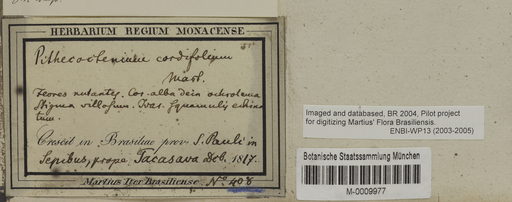 HERBARIUM REGIUM MONACENSE
Pithecoctenium cordifolium
Mart.
Flores nutantes. Cor. alba dein ochroleuca
Stigma villosum. Bac. squamulis echina
tum.
Crescit in Brasiliae prov. S. Pauli in
Sepibus, prope Jacasava Dec. 1817.
Martius Iter Brasiliense. No. 408
Imaged and databased, BR 2004, Pilot project
for digitizing Martius' Flora Brasiliensis.
ENBI-WP13 (2003-2005)
Botanische Staatssammlung München
M-0009977